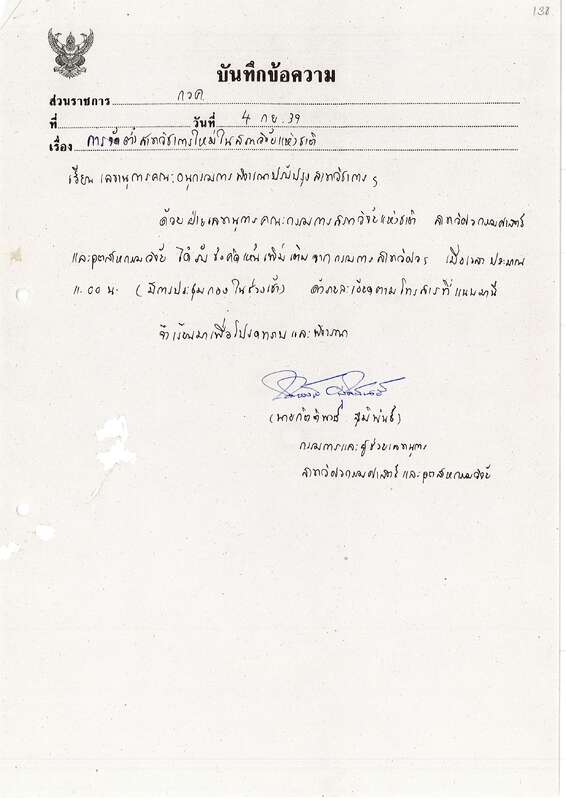 138
บันทึกข้อความ
ส่วนราชการ กวค.
ที่ วันที่ 4 กย. 39
เรื่อง การจัดตั้งสาขาวิชาการใหม่ในสภาวิจัยแห่งชาติ
เรียน เลขานุการคณะอนุกรรมการพิจารณาปรับปรุงสาขาวิชาการ ฯ
ด้วยฝ่ายเลขานุการคณะกรรมการสภาวิจัยแห่งชาติ สาขาวิศวกรรมศาสตร์
และอุตสาหกรรมวิจัย ได้รับข้อคิดเห็นเพิ่มเติมจากกรรมการสาขาวิศวฯ เมื่อเวลาประมาณ
11.00 น. (มีการประชุมกองในช่วงเช้า) ดังรายละเอียดตามโทรสารที่แนบมานี้
จึงเรียนมาเพื่อโปรดทราบและพิจารณา
(นาย สุมิพันธ์)
กรรมการและผู้ช่วยเลขานุการ
สาขาวิศวกรรมศาสตร์และอุตสาหกรรมวิจัย